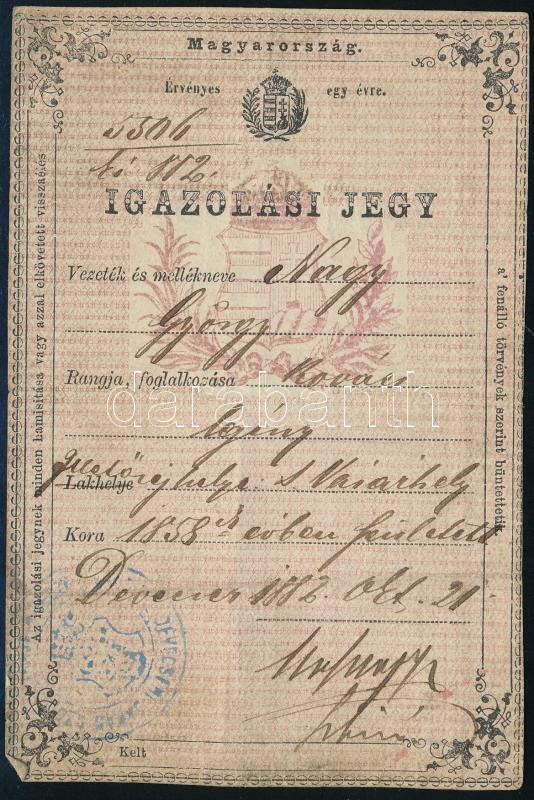 Magyarország.
Érvényes egy évre.
5506
882.
IGAZOLÁSI JEGY
Vezeték és mellékneve Nagy
György
Rangja, foglalkozása kovács
legény
Illetőségi helye: S Vásárhely
Lakhelye
Kora 1858ik évben született
Devecser 1882 Okt. 21
Kelt
Az igazolási jegynek minden hamisítása vagy azzal elkövetett visszaélés
a' fenálló törvények szerint büntettetik.
darabanth